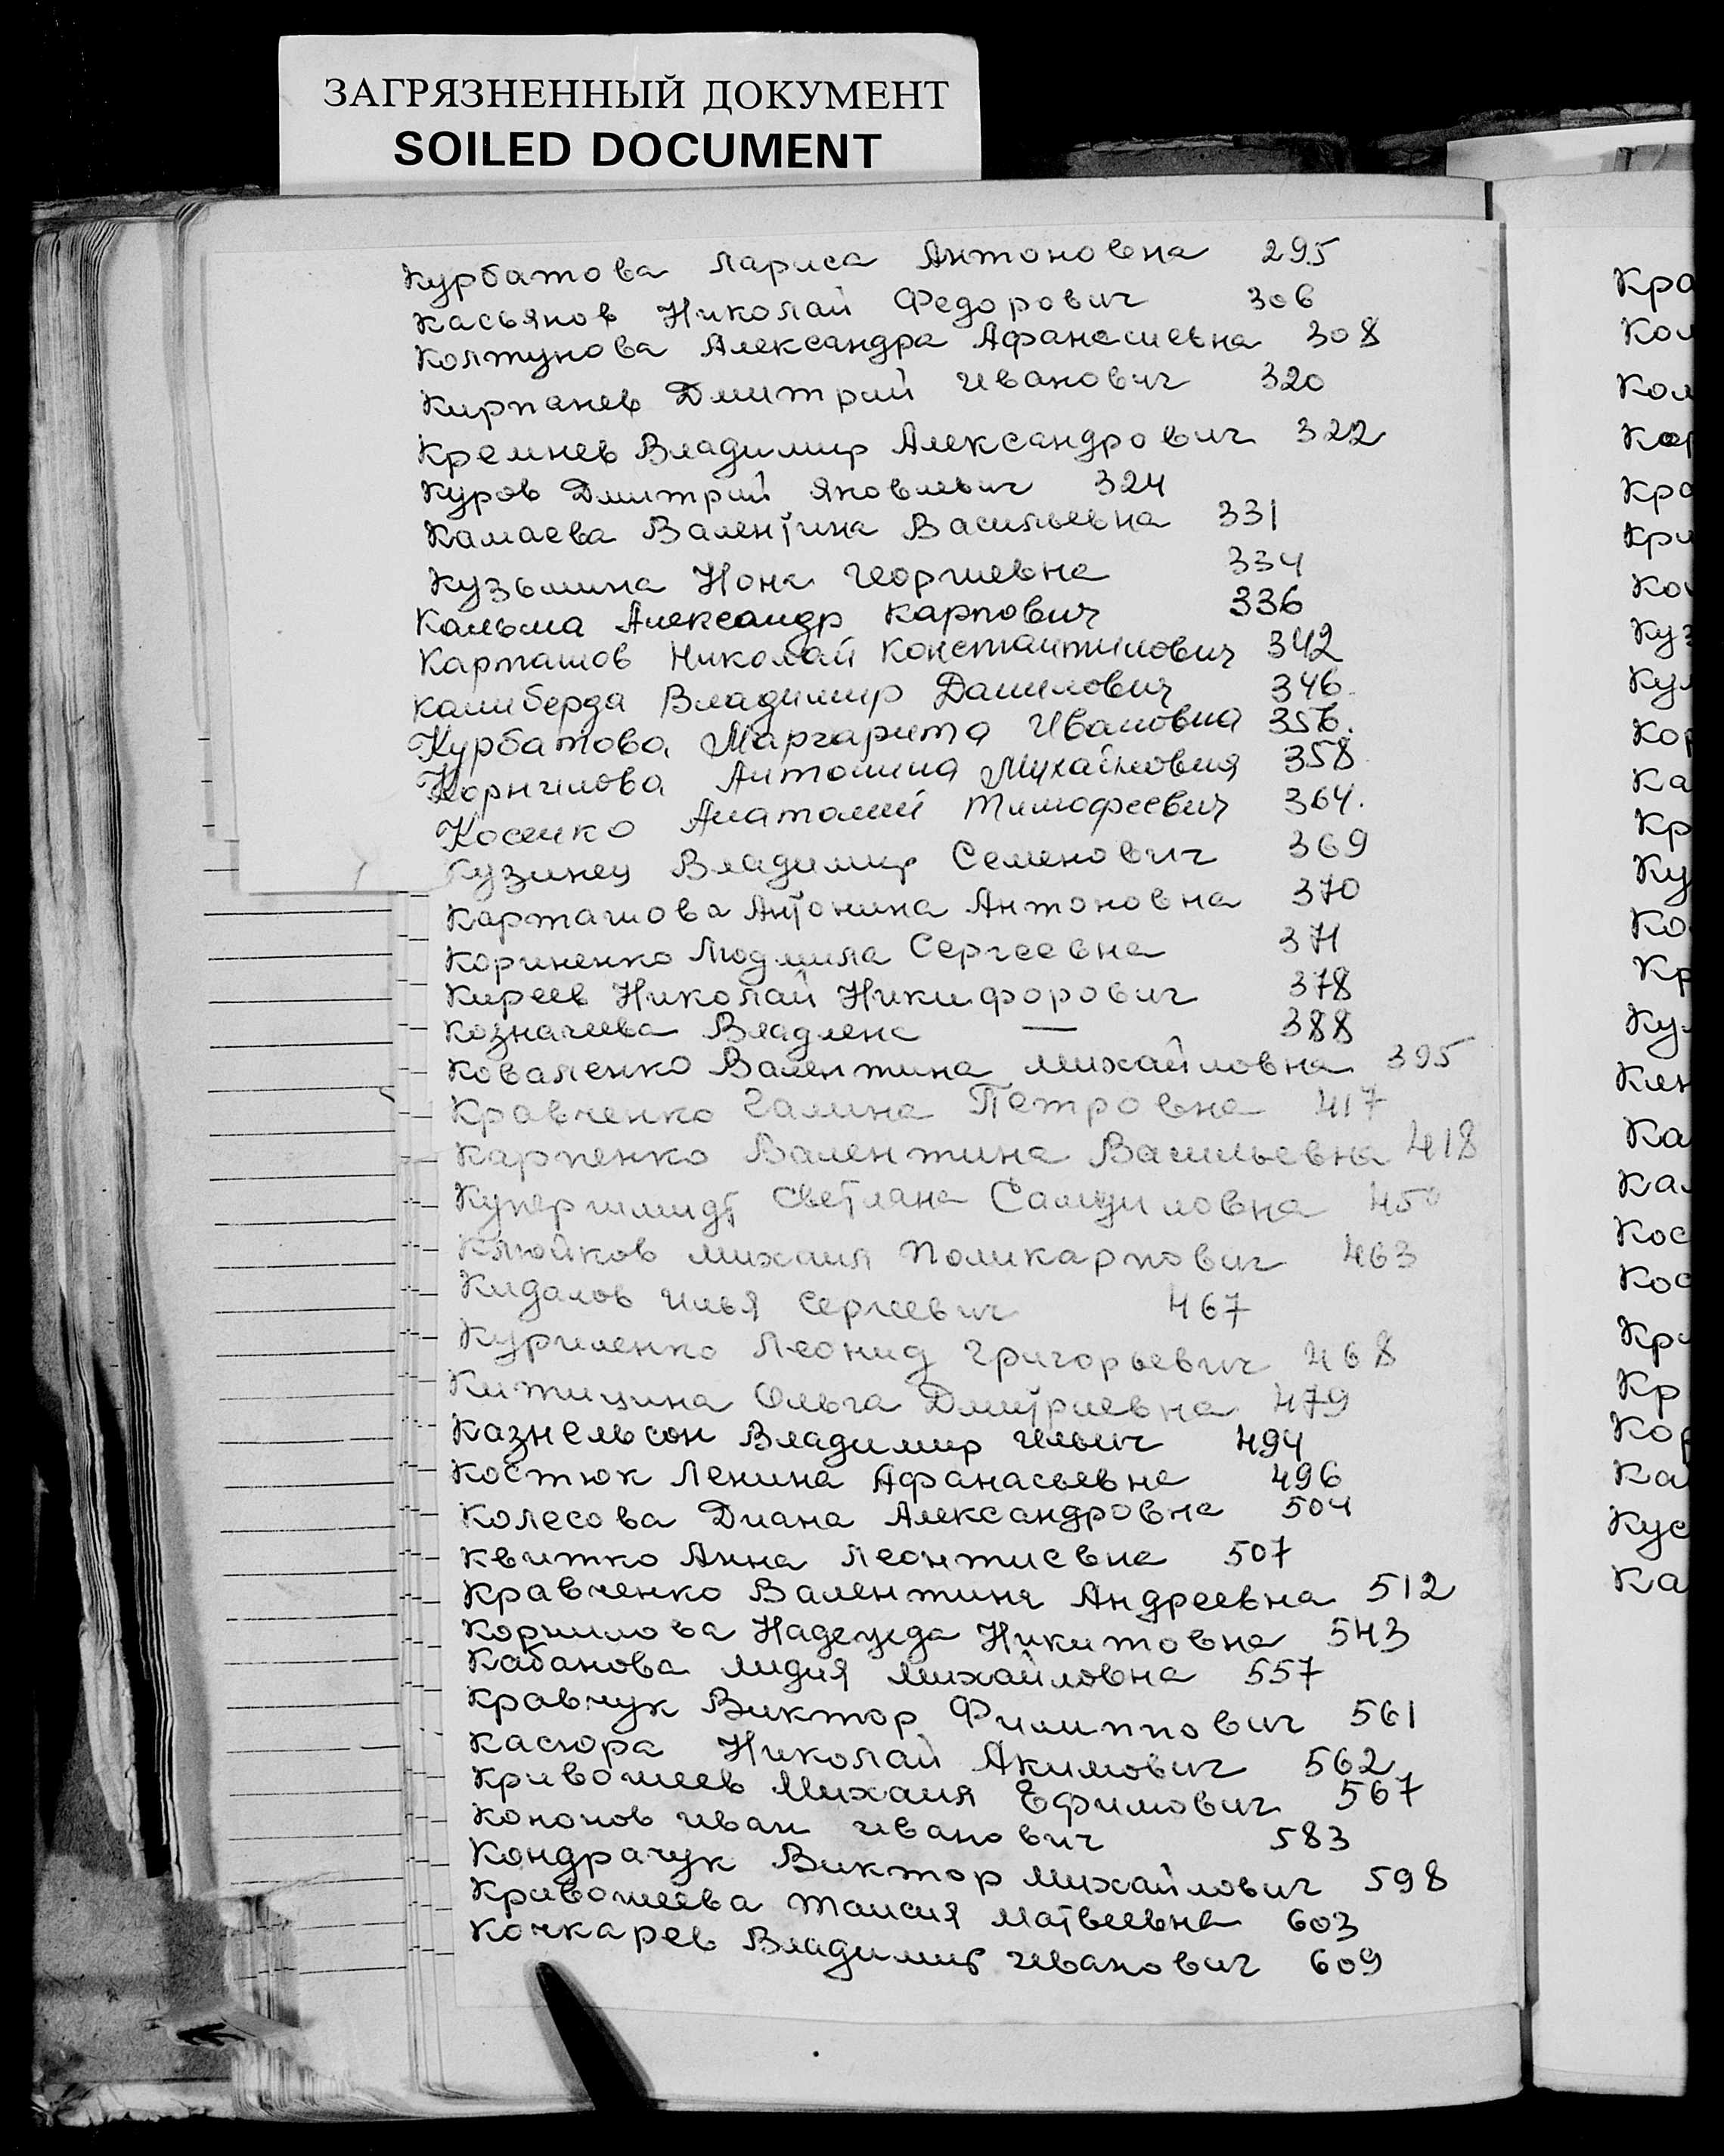 ЗАГРЯЗНЕННЫЙ ДОКУМЕНТ
SOILED DOCUMENT
Курбатова Лариса Антоновна 295
Касьянов Николай Федорович 306
Колтунова Александра Афанасиевна 308
Кирпанев Дмитрий Иванович 320
Кремнев Владимир Александрович 322
Куров Дмитрий Яковлевич 324
Камаева Валентина Васильевна 331
Кузьмина Нона Георгиевна 334
Кальма Александр Карпович 336
Карташов Николай Константинович 342
Калиберда Владимир Данилович 346.
Курбатова Маргарита Ивановна 356.
Корнилова Антонина Михайловна 358
Косенко Анатолий Тимофеевич 364.
Кузинец Владимир Семенович 369
Карташова Антонина Антоновна 370
Кориненко Людмила Сергеевна 371
Киреев Николай Никифорович 378
Козначеева Владлена — 388
Коваленко Валентина Михайловна 395
Кравченко Галина Петровна 417
Карпенко Валентина Васильевна 418
Купершмидт Светлана Самуиловна 450
Клюйков Михаил Поликарпович 463
Кидалов Илья Сергеевич 467
Куриленко Леонид Григорьевич 468
Китицина Ольга Дмитриевна 479
Казнельсон Владимир Ильич 494
Костюк Ленина Афанасьевна 496
Колесова Диана Александровна 504
Квитко Анна Леонтиевна 507
Кравченко Валентина Андреевна 512
Корнилова Надежда Никитовна 543
Кабанова Лидия Михайловна 557
Кравчук Виктор Филиппович 561
Касюра Николай Акимович 562
Кривошеев Михаил Ефимович 567
Кононов Иван Иванович 583
Кондрачук Виктор Михайлович 598
Кривошеева Таисия Матвеевна 603
Кочкарев Владимир Иванович 609